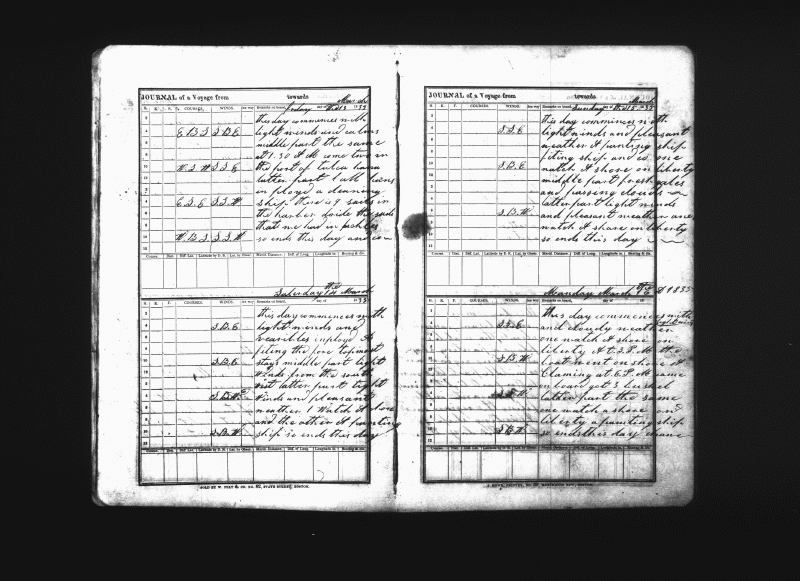 JOURNAL of a Voyage from towards March
H. K. F. COURSES. WINDS. Remarks on board, Friday day of 13 1835
this day commences with
E B S S B E light winds and calms
middle part the same
at 1.30 A M come two in
W S W S S E the port of
latter part 1 all hans
in ployd a cleaning
E S E S S W ship there is 9 sails in
the harber
that we had in
W B S S S W so ends this day and is
Course. Dist. Diff. Lat. Latitude by D. R. Lat. by Obser. Merid. Distance. Diff. of Long. Longitude in Bearing & Dis.
Saturday 14 March
H. K. F. COURSES. WINDS. Remarks on board, day of 1835
this day commences with
S B E light winds and
vearibles imployd A
fiting the fore topmost
S B E stays middle part light
winds from the south
west latter part light
S B W winds and pleasant
weather 1 Watch A shore
and the other A painting
S B W ship so ends this day
Course. Dist. Diff. Lat. Latitude by D. R. Lat. by Obser. Merid. Distance. Diff. of Long. Longitude in Bearing & Dis.
SOLD BY W. No. 67, STATE STREET, BOSTON.
JOURNAL of a Voyage from towards March
H. K. F. COURSES. WINDS. Remarks on board, Sunday day of 15 1835
this day commences with
S S E light winds and pleasant
weather A painting ship
fiting ship and is one
S B E watch A shore on liberty
middle part fresh gales
and passing clouds
latter part light winds
S B W and pleasant weather one
watch A shore on liberty
so ends this day
Course. Dist. Diff. Lat. Latitude by D. R. Lat. by Obser. Merid. Distance. Diff. of Long. Longitude in Bearing & Dis.
Monday March 16 D 1835
H. K. F. COURSES. WINDS. Remarks on board, day of 18
this day commences with
S S E and cloudy weather
one watch A shore on
liberty A t 3. P M the
S B W boat went on shore A
Claming at 6. P M came
on board got 3 bushel
latter part the same
one watch a shore on
liberty a painting ship
S B W so ends this day
Course. Dist. Diff. Lat. Latitude by D. R. Lat. by Obser. Merid. Distance. Diff. of Long. Longitude in Bearing & Dis.